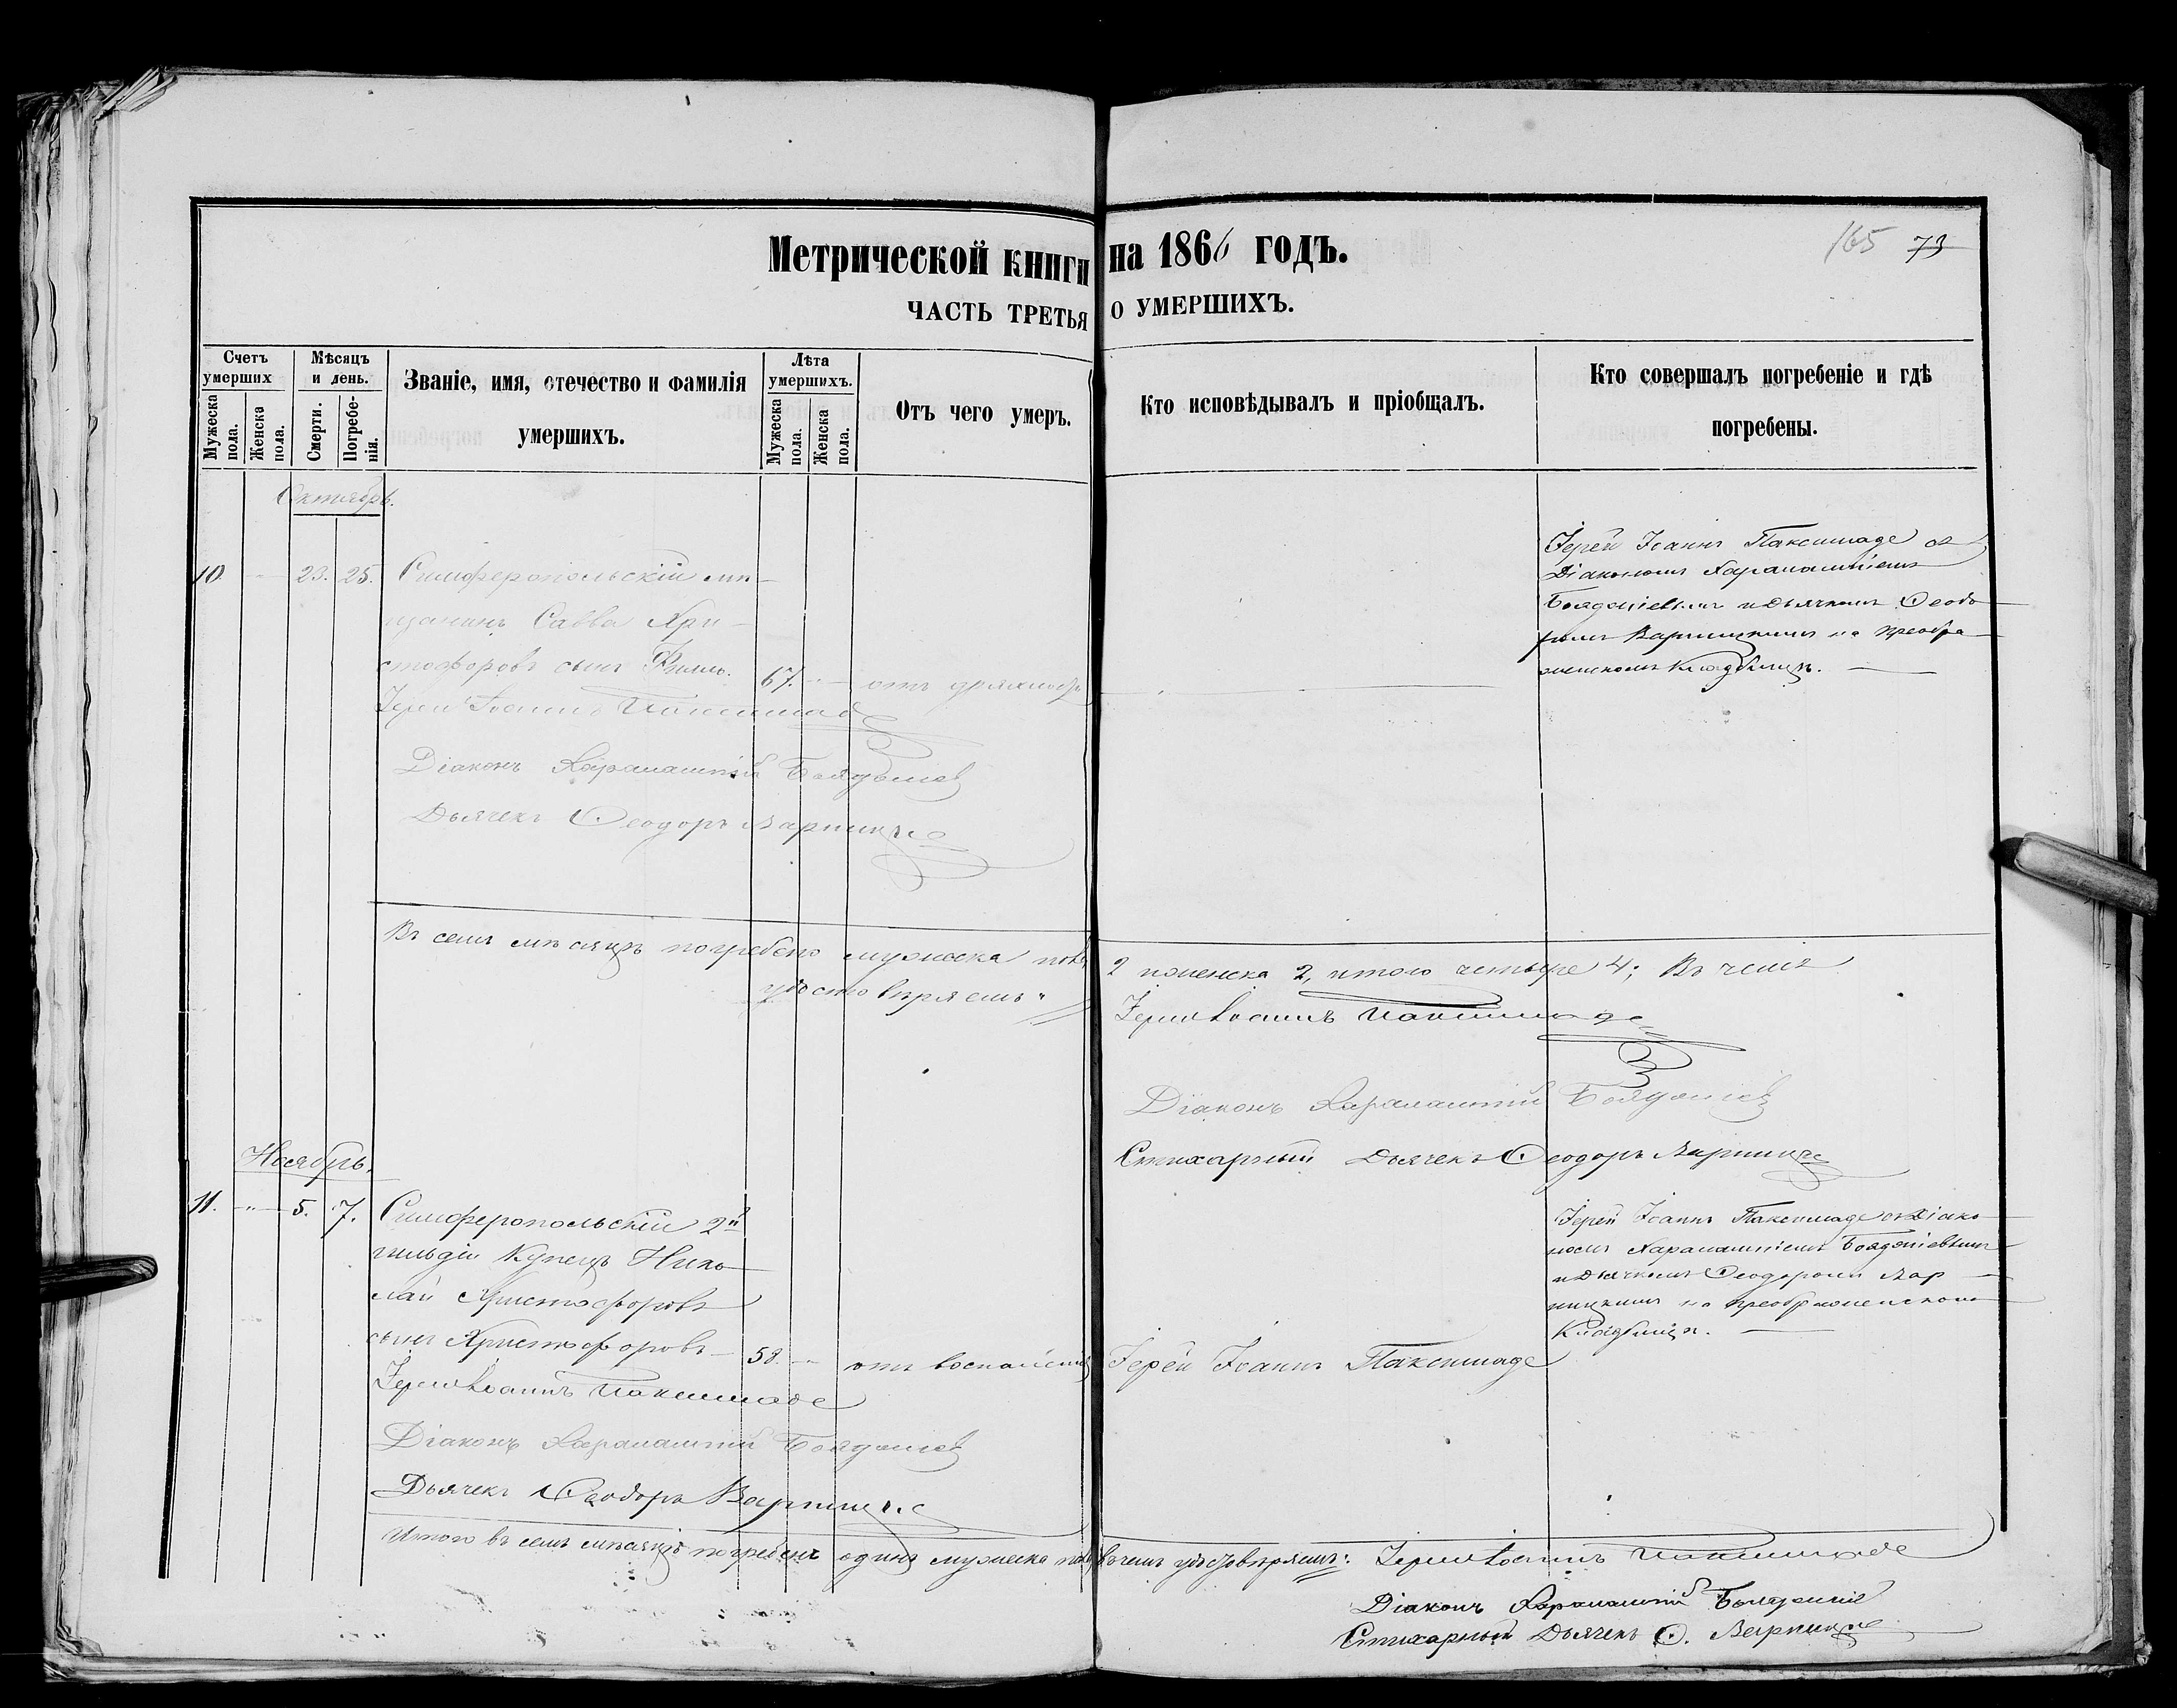 Метрической книги на 1866 годъ.
165 73
ЧАСТЬ ТРЕТЬЯ О УМЕРШИХЪ.
Счетъ умерших
Мужеска пола.
Женска пола.
Мѣсяцъ и день.
Смерти.
Погребенія.
Званіе, имя, отечество и фамилія умершихъ.
Лѣта умершихъ.
Мужеска пола.
Женска пола.
Отъ чего умеръ.
Кто исповѣдывалъ и пріобщалъ.
Кто совершалъ погребеніе и гдѣ погребены.
Октябрь.
10. 23. 25. Симферопольскій мѣ-
щанинъ Савва Хри-
стофоровъ сынъ
67. отъ дряхлости
Іерей Іоаннъ Паксимаде
Діаконъ Харалампій Бояджіев
Дьячекъ Ѳеодоръ Варницкій
Іерей Іоаннъ Паксимаде съ
Діакономъ Харалампіемъ
Бояджіевымъ и дьячкомъ Ѳеодо-
ромъ Варницкимъ на преобра-
женскомъ кладбищѣ.
Въ семъ мѣсяцѣ погребено мужеска пола 2 и женска 2, итого четыре 4; Въ чемъ
удостовѣряемъ:
Іерей Іоаннъ Паксимаде
Діаконъ Харалампій Бояджіев
Стихарный Дьячекъ Ѳеодоръ Варницкій
Ноябрь.
11. " 5. 7. Симферопольскій 2й
гильдіи Купецъ Нико-
лай Христофоровъ
сынъ Христофоровъ
58. " отъ воспаленія
Іерей Іоаннъ Паксимаде
Іерей Іоаннъ Паксимаде
Діаконъ Харалампій Бояджіев
Дьячекъ Ѳеодоръ Варницкій
Іерей Іоаннъ Паксимаде съ Діако-
номъ Харалампіемъ Бояджіевымъ
и дьячкомъ Ѳеодоромъ Вар-
ницкимъ на преображенскомъ
Кладбищѣ.
Итого въ семъ мѣсяцѣ погребенъ одинъ мужеска пола въ чемъ удостовѣряемъ: Іерей Іоаннъ Паксимаде
Діаконъ Харалампій Бояджіев
Стихарный Дьячекъ Ѳ. Варницкій